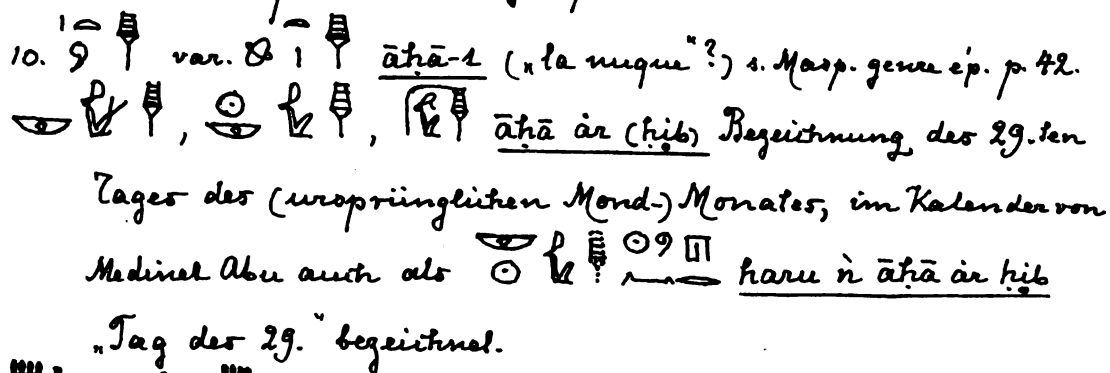 10. var. āḥā-1 („la nuque“?) s. Masp. genre ép. p. 42.
, , āḥā ȧr (ḥib) Bezeichnung des 29.ten
Tages des (ursprünglichen Mond-) Monates, im Kalender von
Medinet Abu auch als haru ṅ āḥā ȧr ḥib
„Tag der 29.“ bezeichnet.